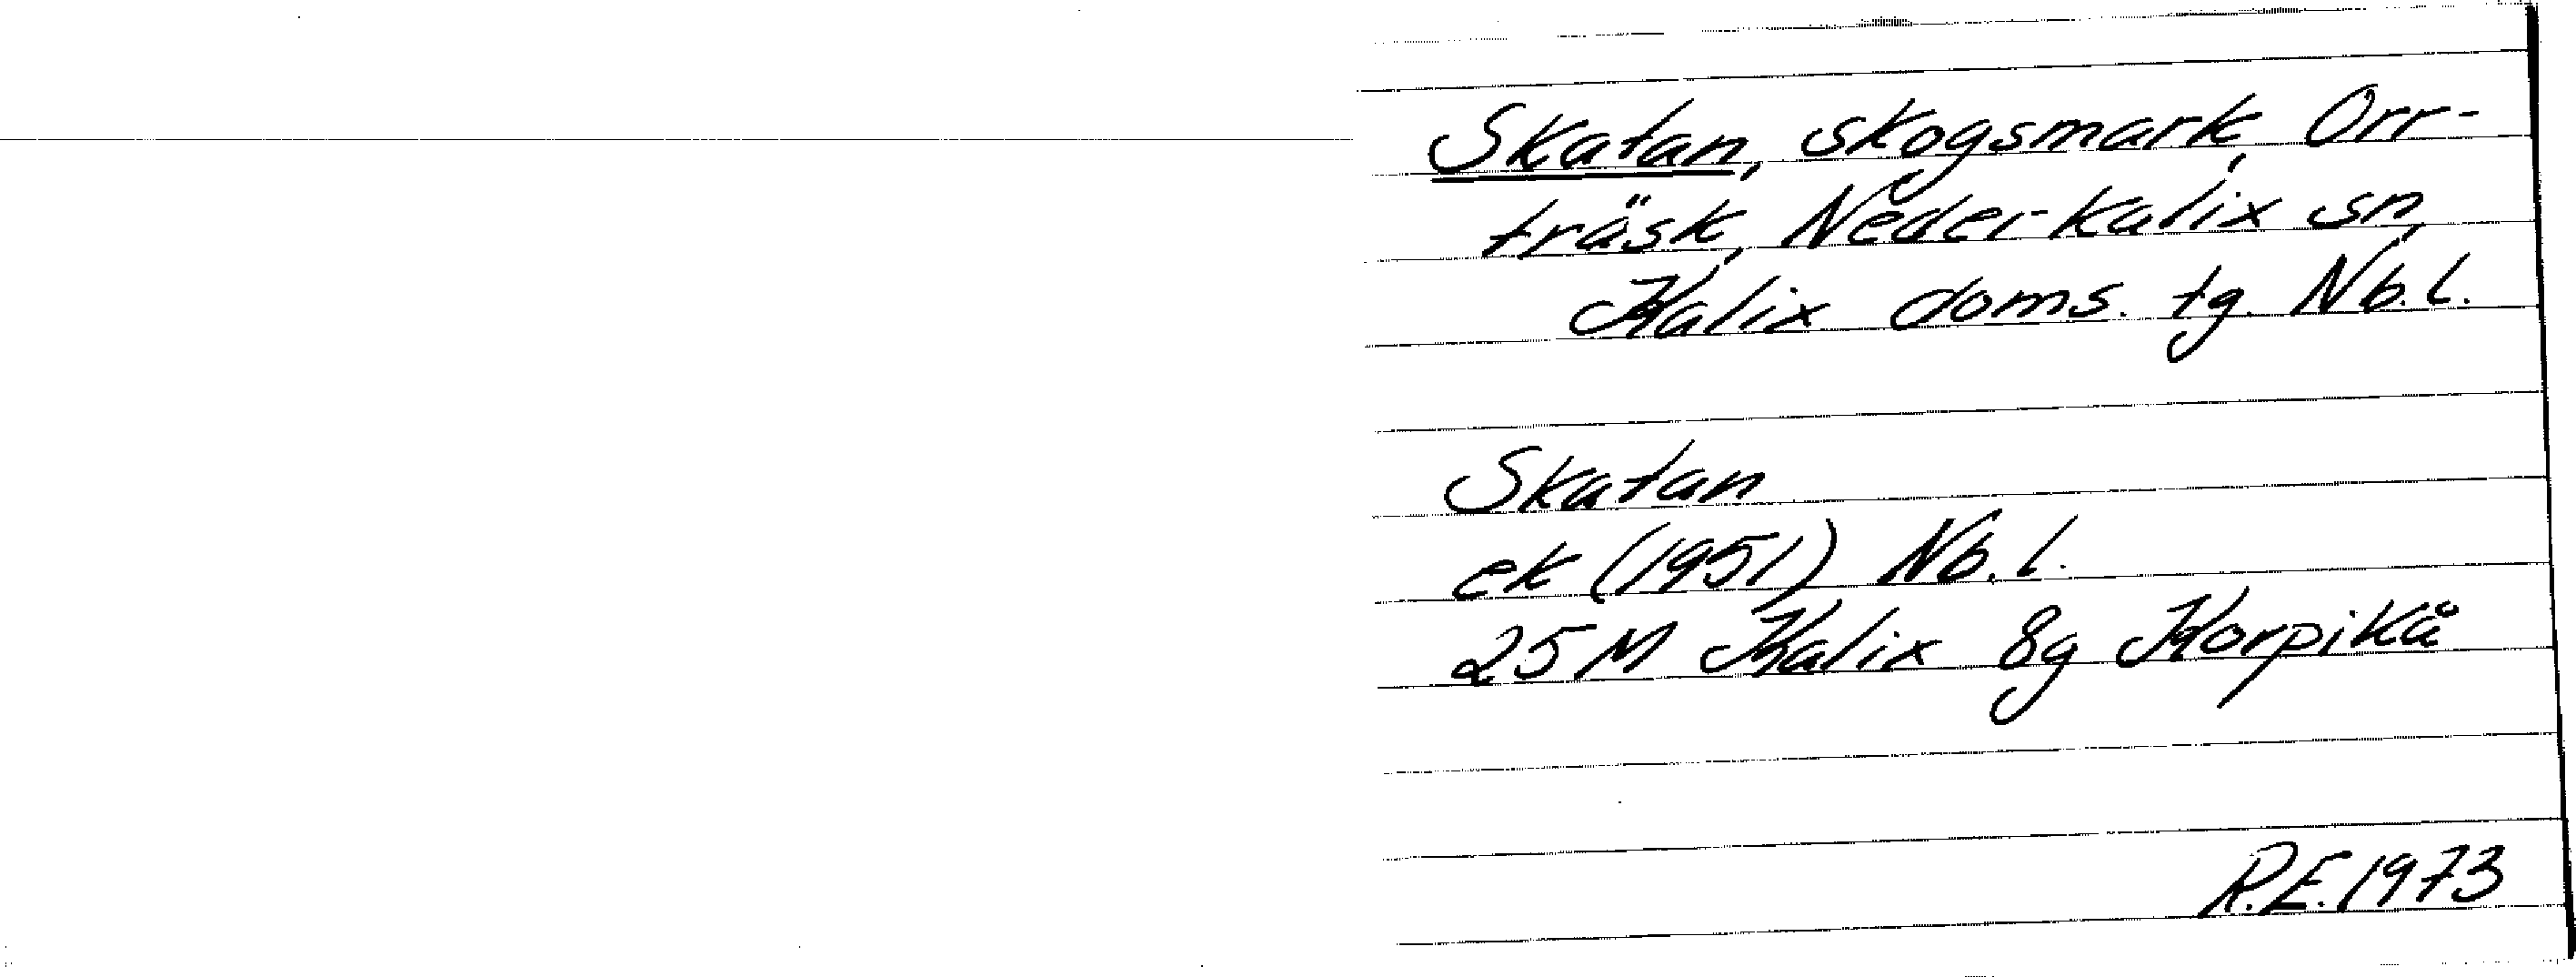 Skatan, skogsmark, Orr-
träsk, Neder-Kalix sn,
Kalix doms. tg. Nb.l.
Skatan
ek (1951) Nb.l.
25M Kalix 8g Korpikå
R.E.1973